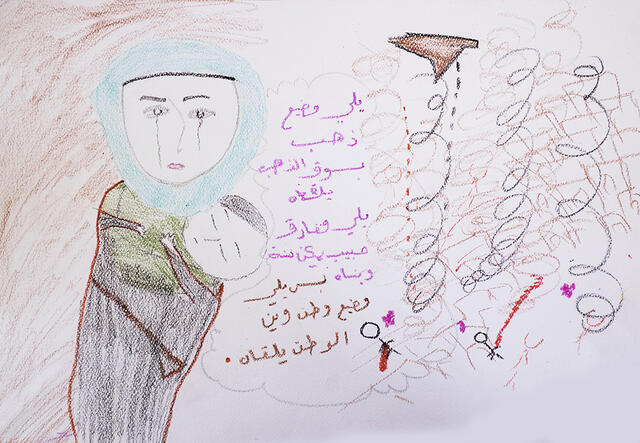 يلي وضيع
ذهب
بسوق الذهب
يلقاه
يلي مفارق
حبيب يمكن سنة
وينساه بس يلي
مضيع وطن وين
الوطن يلقاه .